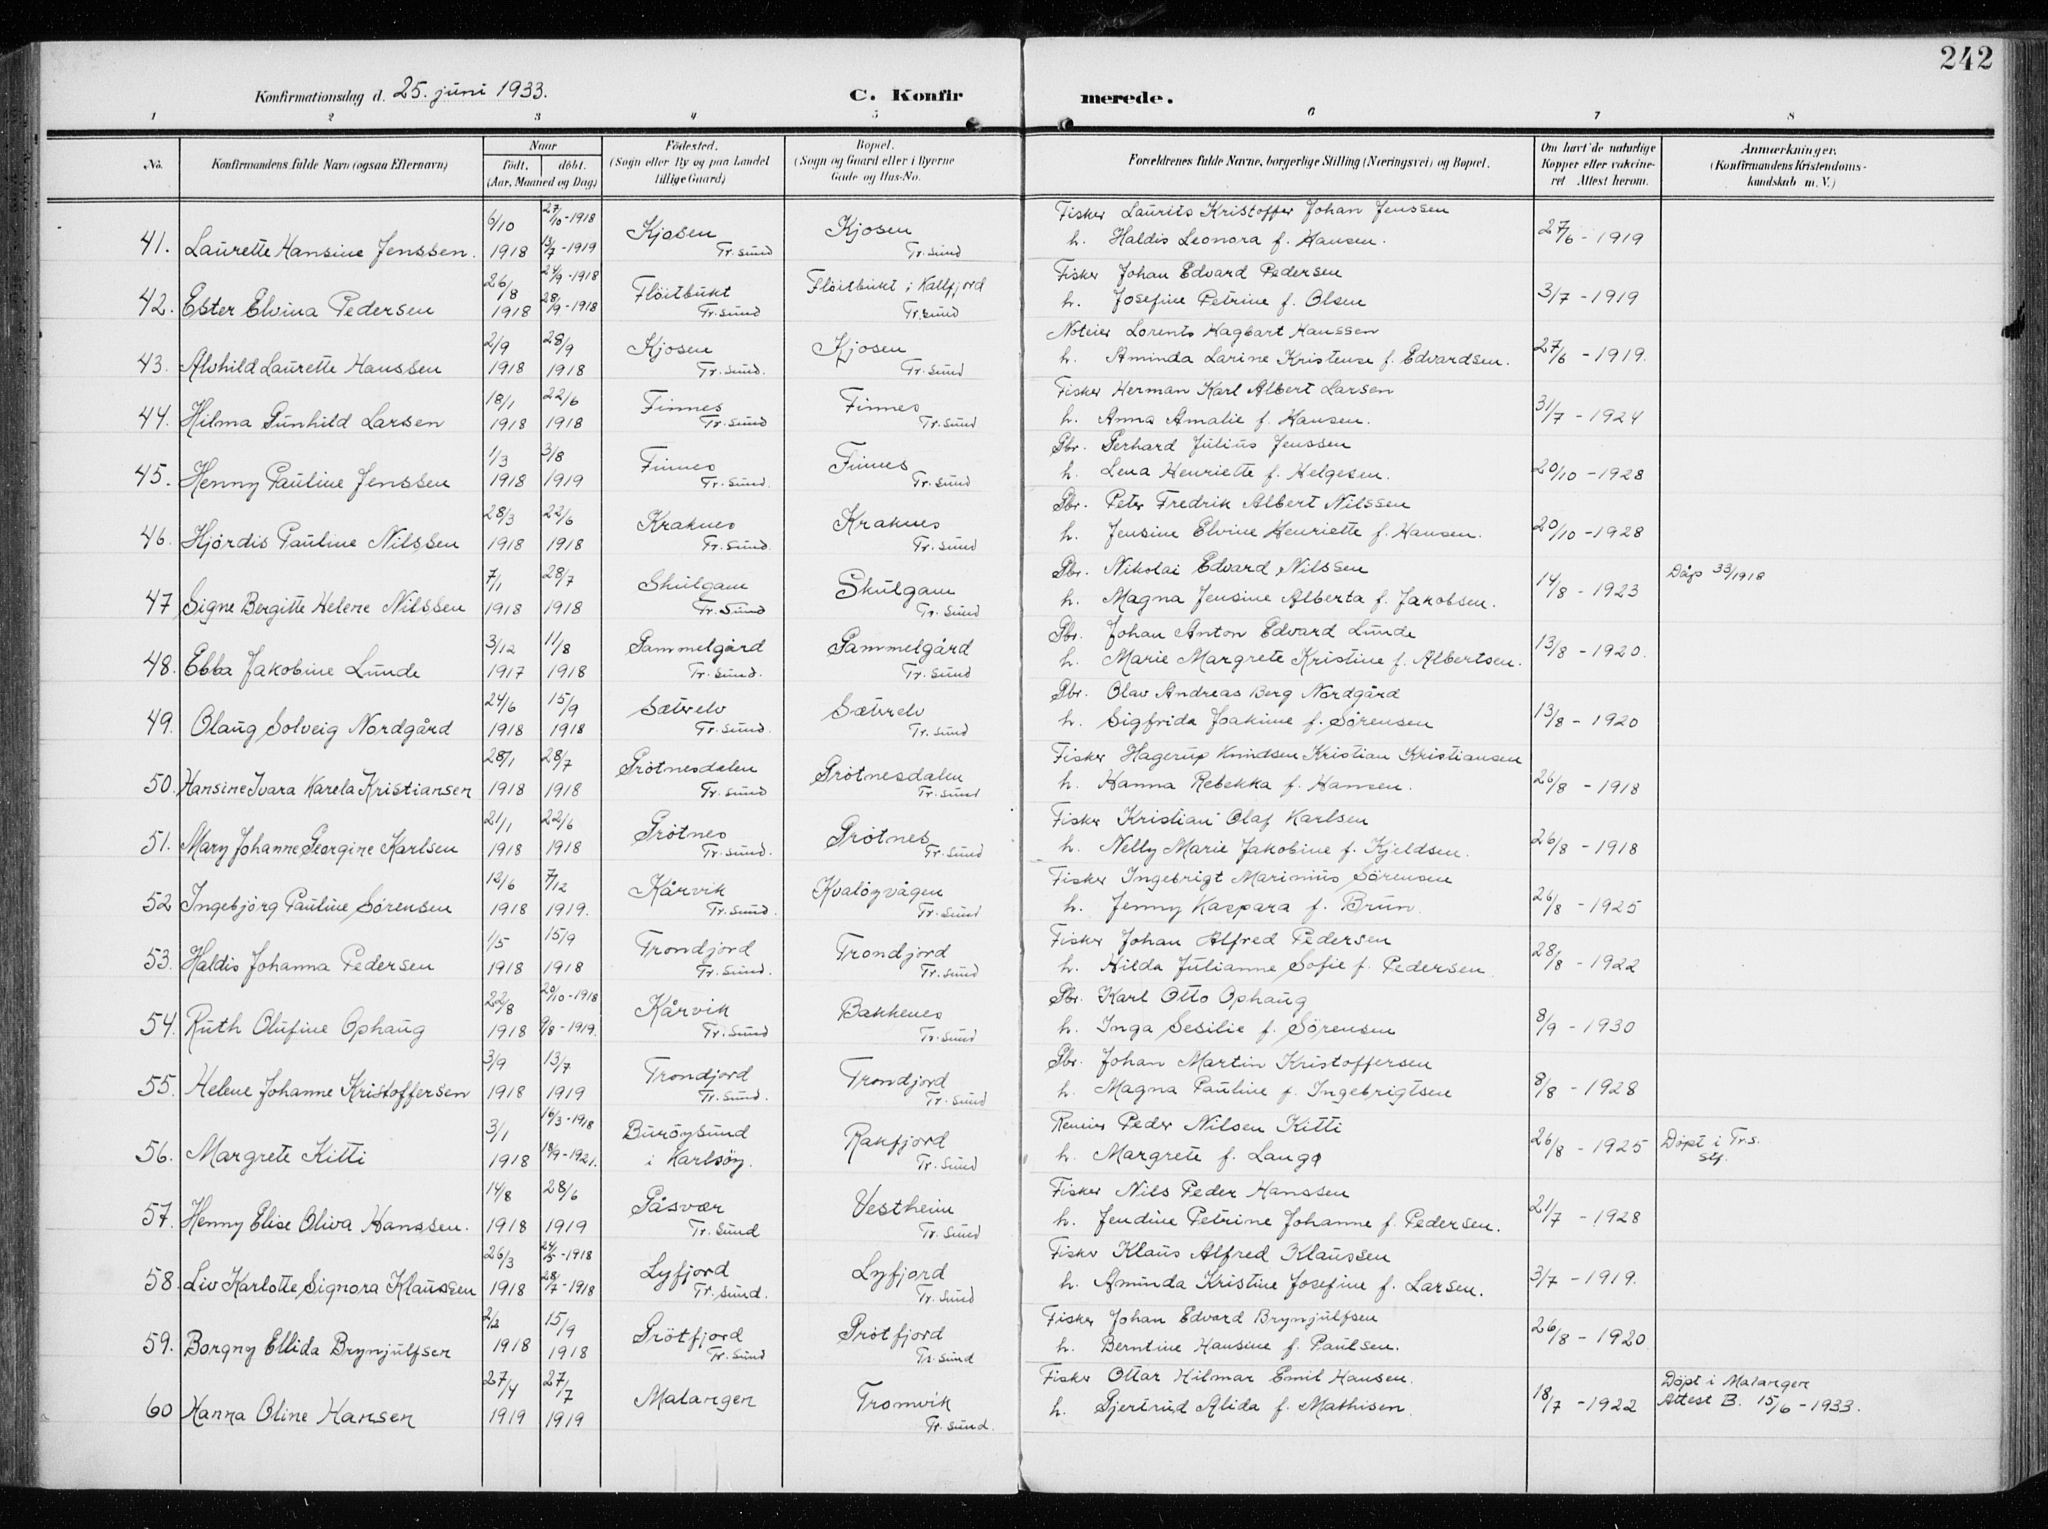 242
Konfirmationsdag d. 25. juni 1933. C. Konfirmerede.
1 2 3 4 5 6 7 8
No. Konfirmandens fulde Navn (ogsaa Efternavn) Naar født, døbt. (Aar, Maaned og Dag) Fødested. (Sogn eller By og paa Landet tillige Gaard) Bopæl. (Sogn og Gaard eller i Byerne Gade og Hus-No. Forældrenes fulde Navne, borgerlige Stilling (Næringsvei) og Bopæl. Om havt de naturlige Kopper eller vakcineret Attest herom. Anmærkninger. (Konfirmandens Kristendomskundskab m. V.)
6/10 27/10-1918 Kjosen Kjosen Fisker Laurits Kristoffer Johan Jenssen
41. Laurette Hansine Jenssen. 1918 13/7-1919 Tr.sund Tr.sund h. Haldis Leonora f. Hansen. 27/6-1919
26/8 24/9-1918 Flöitbukt Flöitbukt i Kattfjord Fisker Johan Edvard Pedersen
42. Ester Elvina Pedersen 1918 28/9-1918 Tr.sund Tr.sund h. Josefine Petrine f. Olsen 3/7-1919
2/9 28/9 Kjosen Kjosen Noteier Lorents Hagbart Hanssen
43. Alvhild Laurette Hanssen 1918 1918 Tr.sund. Tr.sund h. Aminda Larine Kristense f. Edvardsen. 27/6-1919.
18/1 22/6 Finnes Finnes Fisker Herman Karl Albert Larsen
44. Hilma Gunhild Larsen 1918 1918 Tr.sund Tr.sund h. Anna Amalie f. Hansen. 31/7-1924
1/3 3/8 Finnes Finnes Gbr. Gerhard Julius Jenssen
45. Henny Pauline Jenssen 1918 1919 Tr.sund. Tr.sund h. Lena Henriette f. Helgesen. 20/10-1928
28/3 22/6 Kraknes Kraknes Gbr. Peter Fredrik Albert Nilssen
46. Hjördis Pauline Nilssen 1918 1918 Tr.sund. Tr.sund h. Jensine Elvine Henriette f. Hansen. 20/10-1928
7/1 28/7 Skulgam Skulgam Gbr. Nikolai Edvard Nilssen Dåp 33/1918
47 Signe Bergitte Helene Nilssen 1918 1918 Tr.sund Tr.sund h. Magna Jensine Alberta f. Jakobsen. 14/8-1923
3/12 11/8 Gammelgård Gammelgård Gbr. Johan Anton Edvard Lunde
48. Ebba Jakobine Lunde 1917 1918 Tr.sund. Tr.sund h. Marie Margrete Kristine f. Albertsen. 13/8-1920.
24/6 15/9 Sætrelv Sætrelv Gbr. Olav Andreas Berg Nordgård
49. Olaug Solveig Nordgård 1918 1918 Tr.sund. Tr.sund h. Sigfrida Joakime f. Sørensen 13/8-1920
28/1 28/7 Grötnesdalen Grötnesdalen Fisker Hagerup Knudsen Kristian Kristiansen
50. Hansine Ivara Karela Kristiansen 1918 1918 Tr.sund Tr.sund h. Hanna Rebekka f. Hansen. 26/8-1918
21/1 22/6 Grötnes Grötnes Fisker Kristian Olaf Karlsen
51. Mary Johanne Georgine Karlsen 1918 1918 Tr.sund. Tr.sund h. Nelly Marie Jakobine f. Kjeldsen. 26/8-1918
12/6 7/12 Kårvik Kvalöyvågen Fisker Ingebrigt Marinius Sörensen
52 Ingebjörg Pauline Sörensen 1918 1919. Tr.sund. Tr.sund h. Jenny Kaspara f. Brun. 26/8-1925
1/5 15/9 Trondjord Trondjord Fisker Johan Alfred Pedersen
53. Haldis Johanna Pedersen 1918 1918 Tr.sund. Tr.sund h. Hilda Julianne Sofie f. Pedersen 28/8-1922
22/8 20/10-1918 Kårvik Bakkenes Gbr. Karl Otto Ophaug
54. Ruth Olufine Ophaug 1918 9/8-1919. Tr.sund Tr.sund h. Inga Sesilie f. Sörensen 8/9-1930
3/9 13/7 Trondjord Trondjord Gbr. Johan Martin Kristoffersen
55. Helene Johanne Kristoffersen 1918 1919 Tr.sund. Tr.sund h. Magna Pauline f. Ingebrigtsen 8/8-1928
3/1 16/3-1918 Buröysund Rakfjord Reneier Peder Nilsen Kitti
56. Margrete Kitti 1918 18/9-1921. i Karlsöy. Tr.sund h. Margrete f. Langø 26/8-1925 Döpt i Tr.s. st.
14/8 28/6 Gåsvær Vestheim Fisker Nils Peder Hanssen
57. Henny Elise Oliva Hanssen. 1918 1919 Tr.sund Tr.sund h. Jendine Petrine Johanne f. Pedersen. 21/7-1928
26/3 24/5-1918 Lyfjord Lyfjord Fisker Klaus Alfred Klaussen
58. Liv Karlotte Signora Klaussen 1918 28/7-1918 Tr.sund. Tr.sund h. Aminda Kristine Josefine f. Larsen. 3/7-1919.
2/2 15/9 Grötfjord Grötfjord Fisker Johan Edvard Brynjulfsen
59. Borgny Ellida Brynjulfsen 1918 1918 Tr.sund Tr.sund h. Berntine Hansine f. Paulsen. 26/8-1920
27/4 27/7 Malangen Tromvik Fisker Ottar Hilmar Emil Hansen. Döpt i Malangen
60 Hanna Oline Hansen 1919 1919 Tr.sund. h. Gjertrud Alida f. Mathisen. 18/7-1922 Attest B. 15/6-1933.